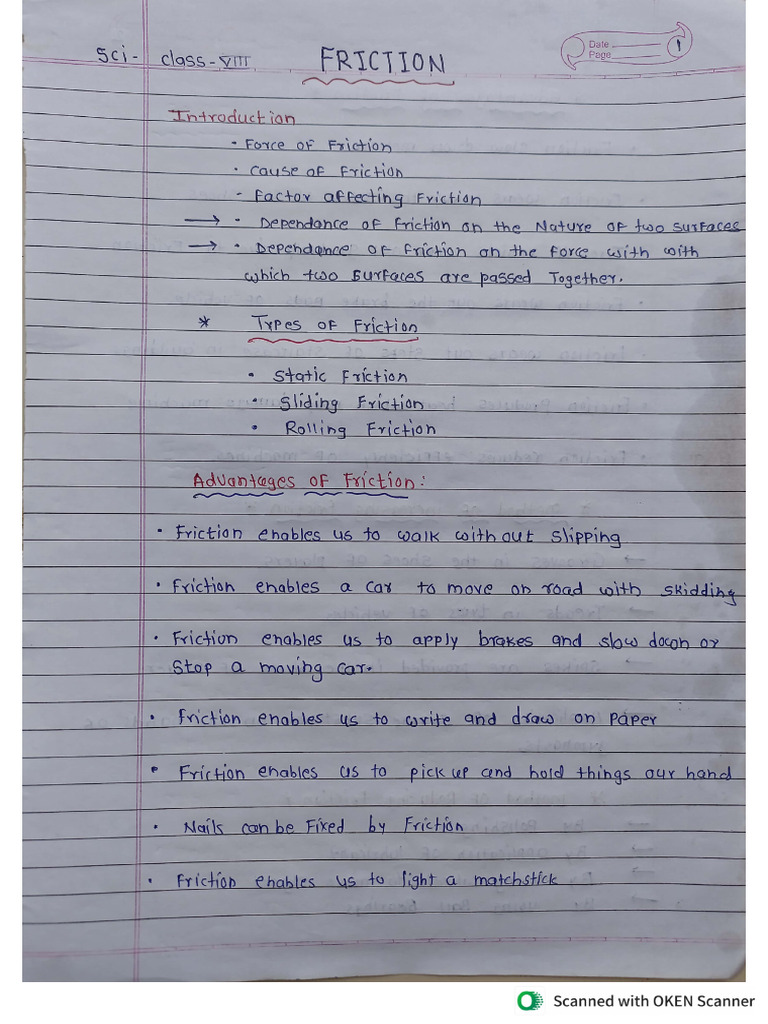 Sci- Class-VIII FRICTION
Date
Page 1
Introduction
· Force of Friction
· Cause of Friction
· Factor affecting Friction
→ · Dependance of Friction on the Nature of two surfaces
→ · Dependance of Friction on the force with with
which two surfaces are passed Together.
* Types of Friction
· Static Friction
· Sliding Friction
· Rolling Friction
Advantages of Friction:
· Friction enables us to walk without slipping
· Friction enables a car to move on road with skidding
· Friction enables us to apply brakes and slow down or
Stop a moving car.
· Friction enables us to write and draw on paper
· Friction enables us to pick up and hold things our hand
· Nails can be Fixed by Friction
· Friction enables us to light a matchstick
Scanned with OKEN Scanner